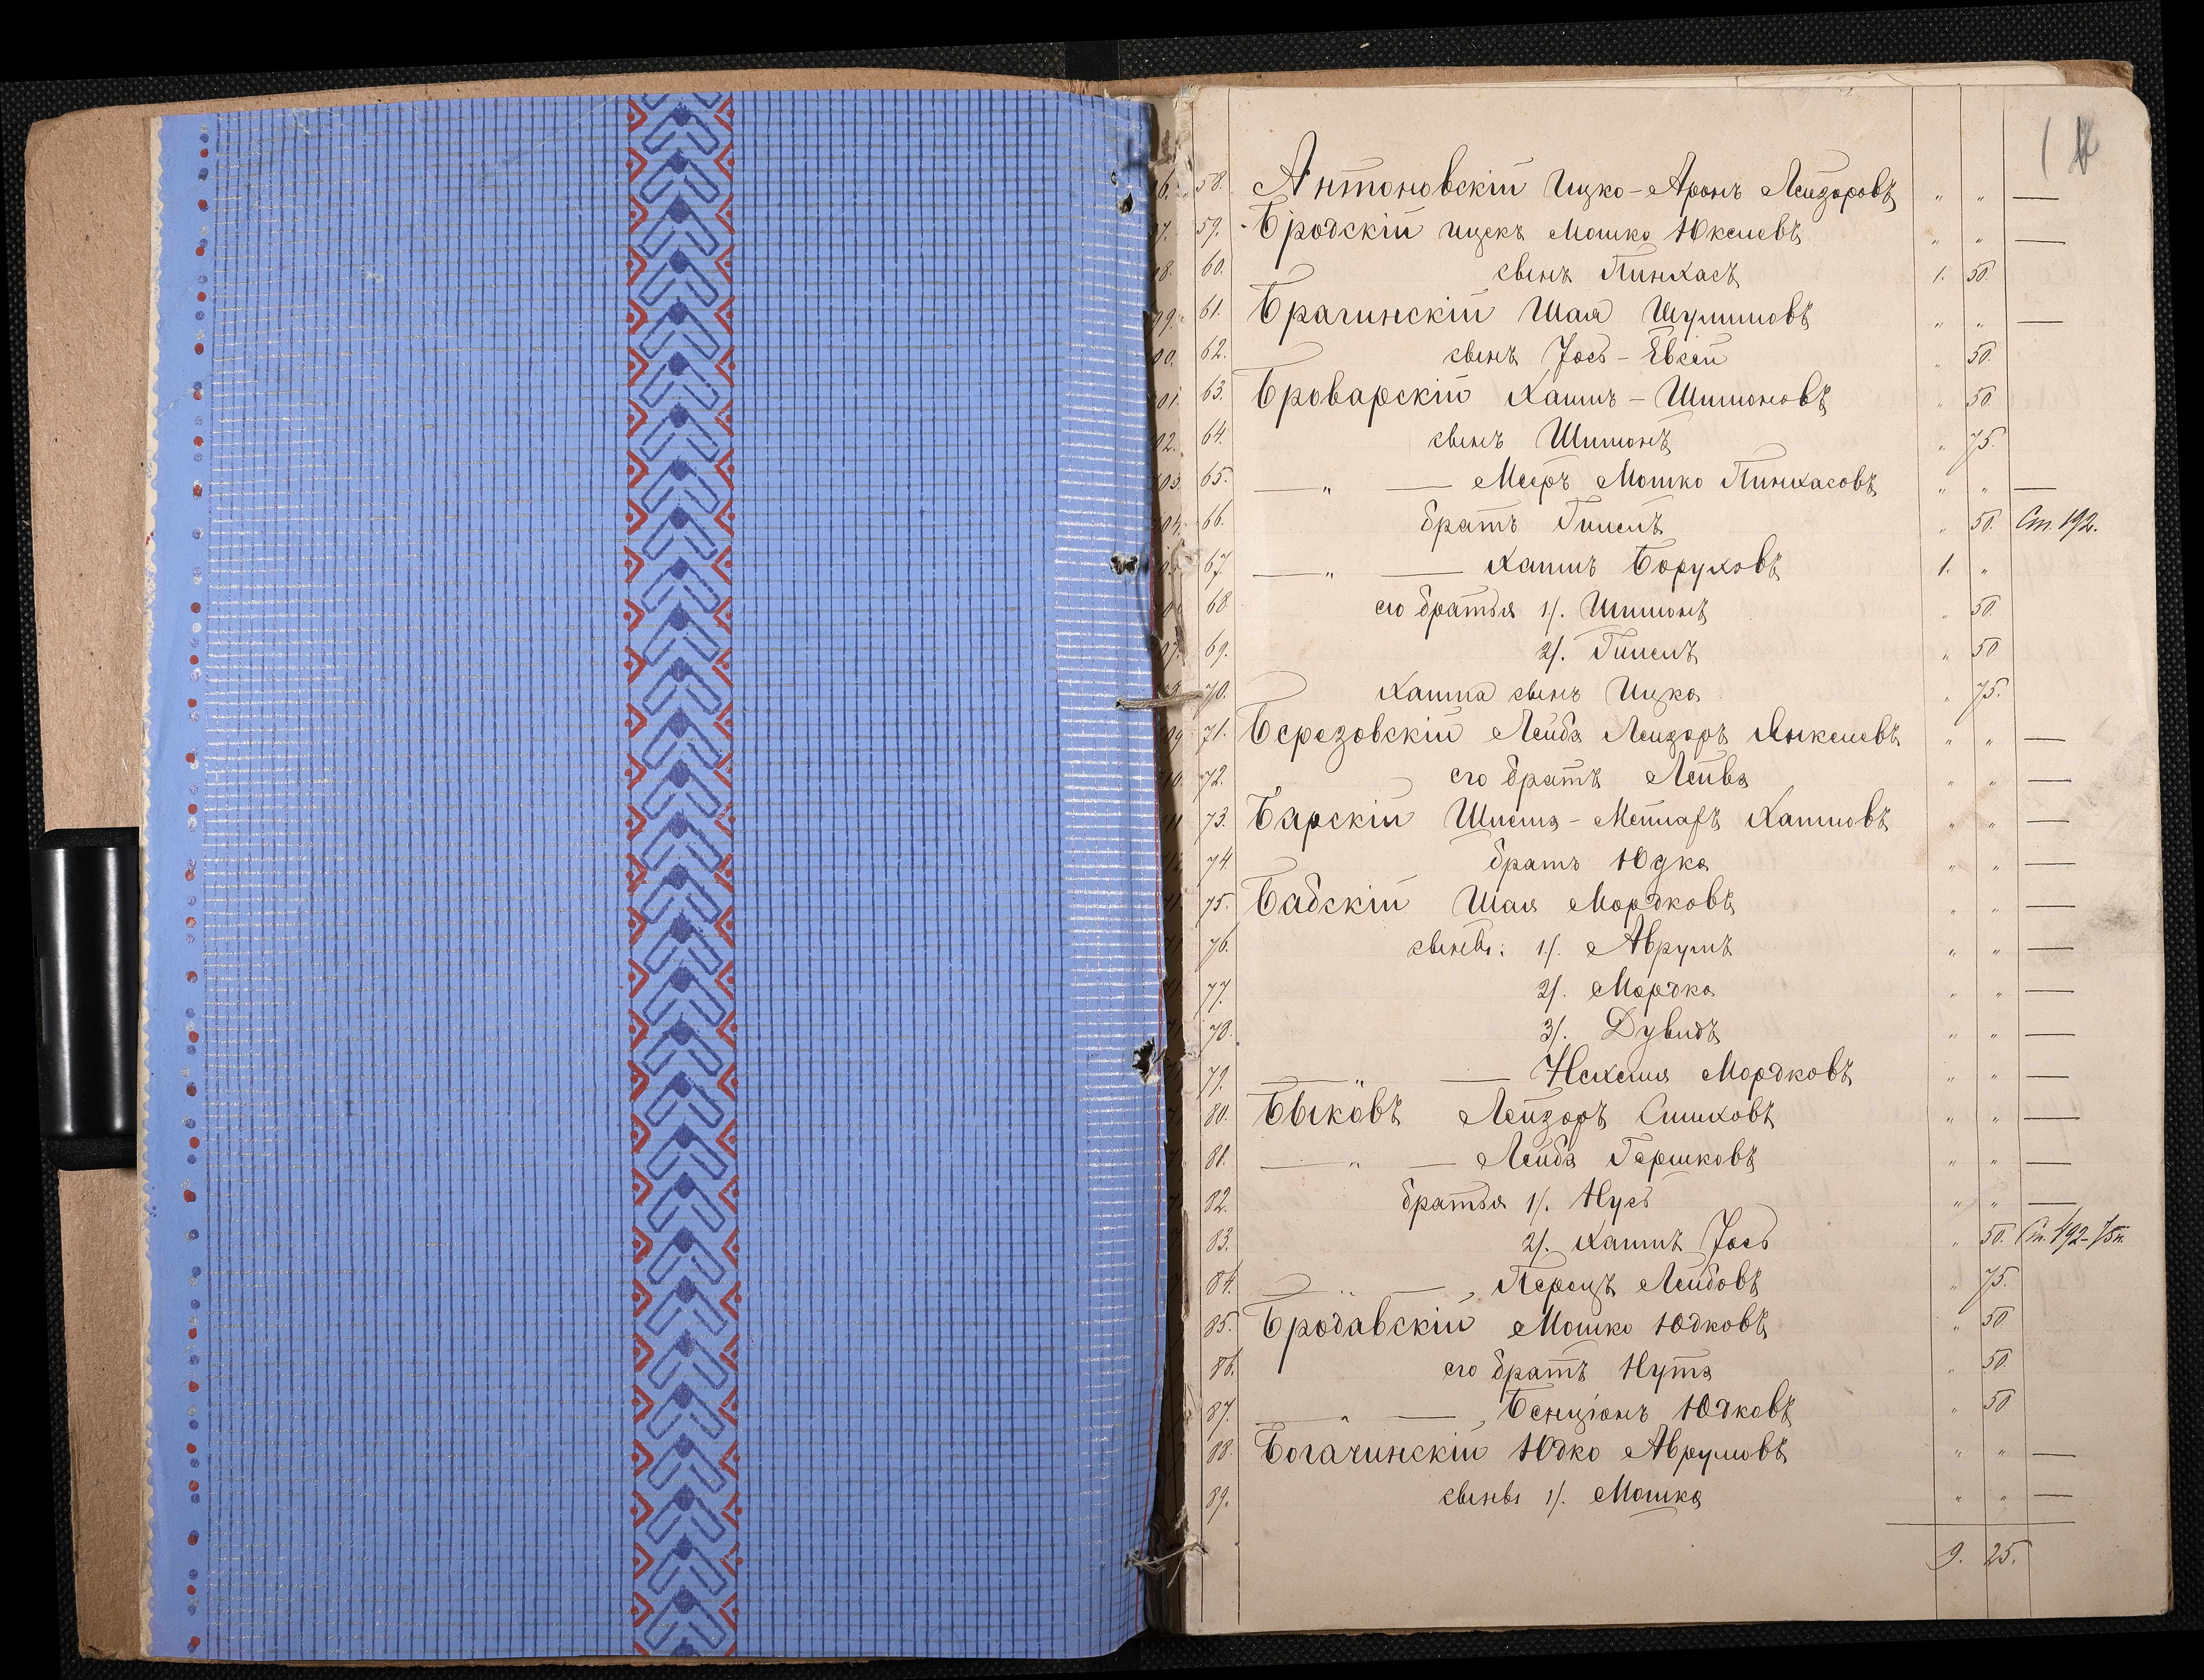 58. Антоновскій Ицко-Аронъ Лейзоровъ " " —
59. Бродскій Ицекъ Мошко Юкелевъ " " —
60. сынъ Пинхасъ 1. 50.
61. Брагинскій Шая Шулимовъ " " —
62. сынъ Іось-Евсей " 50.
63. Броварскій Хаимъ-Шимоновъ " 50
64. сынъ Шимонъ " 75.
65. — " — Мееръ Мошко Пинхасовъ " " —
66. братъ Гипель " 50. Ст. 192.
67. — " — Хаимъ Боруховъ 1. "
68 его братья 1/. Шимонъ " 50.
69. 2/. Гипель " 50
70. Хаима сынъ Ицко " 75.
71. Березовскій Лейба Лейзоръ Янкелевъ " " —
72. его братъ Лейва " " —
73. Барскій Хаимовъ " " —
74 братъ Юдко " " —
75. Бабскій Шая Мордковъ " " —
76. сыновья: 1/. Аврумъ " " —
77. 2/. Мордко " " —
78. 3/. Дувидъ " " —
79. — " — Нехемія Мордковъ " " —
80. Быковъ Лейзоръ Симховъ " " —
81. — " — Лейба Гершковъ " " —
82. братья 1/. Нусь " " —
83. 2/. Хаимъ Іось " 50. Ст. 192-75к.
84. — " — Перецъ Лейбовъ " 75.
85. Бродавскій Мошко Юдковъ " 50
86. его братъ Нута " 50.
87. — " — Бенціонъ Юдковъ " 50
88. Богачинскій Юдко Аврумовъ " " —
89. сыновья 1/. Мошко " " —
9. 25.